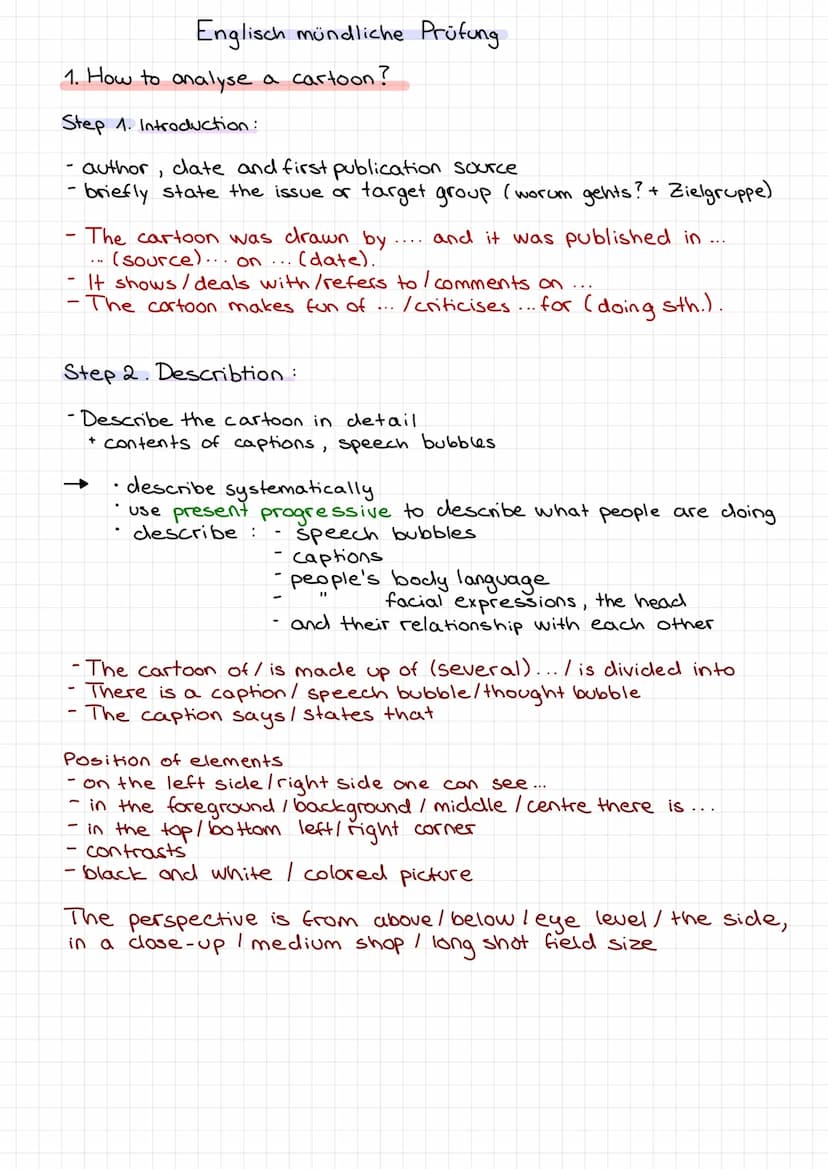 Englisch mündliche Prüfung
1. How to analyse a cartoon?
Step 1. Introduction:
- author, date and first publication source
- briefly state the issue or target group (worum gehts? + Zielgruppe)
- The cartoon was drawn by .... and it was published in ...
... (source)... on ... (date).
- It shows/deals with/refers to/comments on ...
- The cartoon makes fun of ... /criticises ... for (doing sth.).
Step 2. Describtion:
- Describe the cartoon in detail
+ contents of captions, speech bubbles
→ • describe systematically
• use present progressive to describe what people are doing
• describe : - speech bubbles
- captions
- people's body language
- " facial expressions, the head
- and their relationship with each other
- The cartoon of/is made up of (several)... / is divided into
- There is a caption/speech bubble/thought bubble
- The caption says/states that
Position of elements
- on the left side/right side one can see...
- in the foreground/background/middle/centre there is ...
- in the top/bottom left/right corner
- contrasts
- black and white / colored picture
The perspective is from above/below/eye level/the side,
in a close-up / medium shop / long shot field size